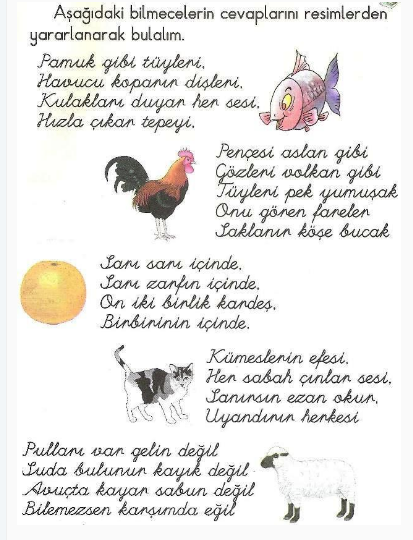 Aşağıdaki bilmecelerin cevaplarını resimlerden
yararlanarak bulalım.
Pamuk gibi tüyleri,
Havucu koparır dişleri,
Kulakları duyar her sesi,
Hızla çıkar tepeyi.
Pençesi aslan gibi
Gözleri volkan gibi
Tüyleri pek yumuşak
Onu gören fareler
Saklanır köşe bucak
Sarı sarı içinde,
Sarı zarfın içinde,
On iki birlik kardeş,
Birbirinin içinde.
Kümeslerin efesi,
Her sabah çınlar sesi,
Sanırsın ezan okur,
Uyandırır herkesi
Pulları var gelin değil
Suda bulunur kayık değil
Avuçta kayar sabun değil
Bilemezsen karşımda eğil